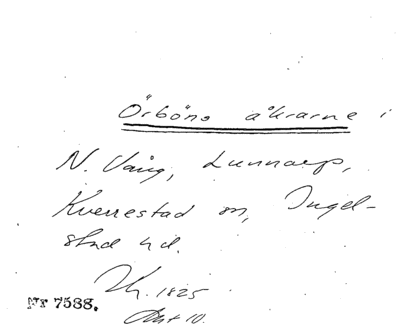 Örböns åkrarne i
N. Vång, Lunnarp,
Kverrestad sn, Ingel-
stad hd.
1825
Akt 10.
Nr 7588.